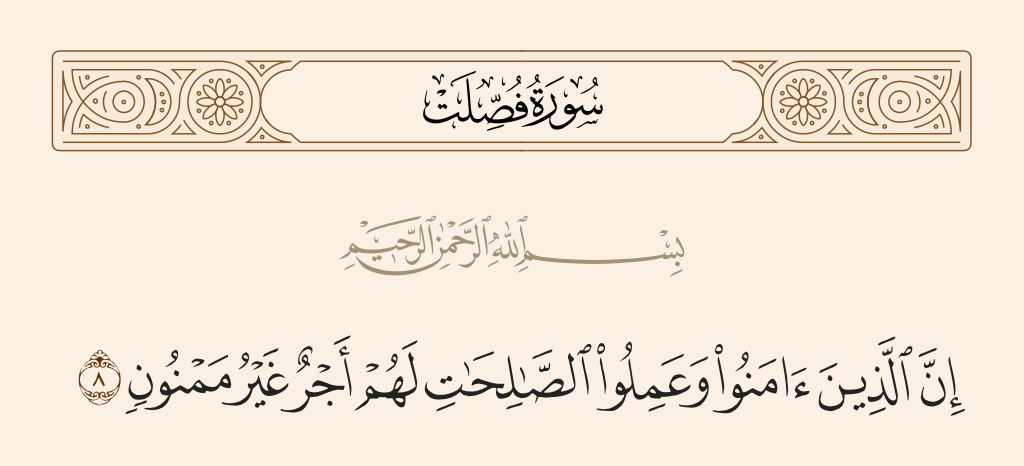 سُورَةُ فُصِّلَتْ
بِسْمِ ٱللَّهِ ٱلرَّحْمَٰنِ ٱلرَّحِيمِ
إِنَّ ٱلَّذِينَ ءَامَنُوا۟ وَعَمِلُوا۟ ٱلصَّـٰلِحَـٰتِ لَهُمْ أَجْرٌ غَيْرُ مَمْنُونٍ ٨